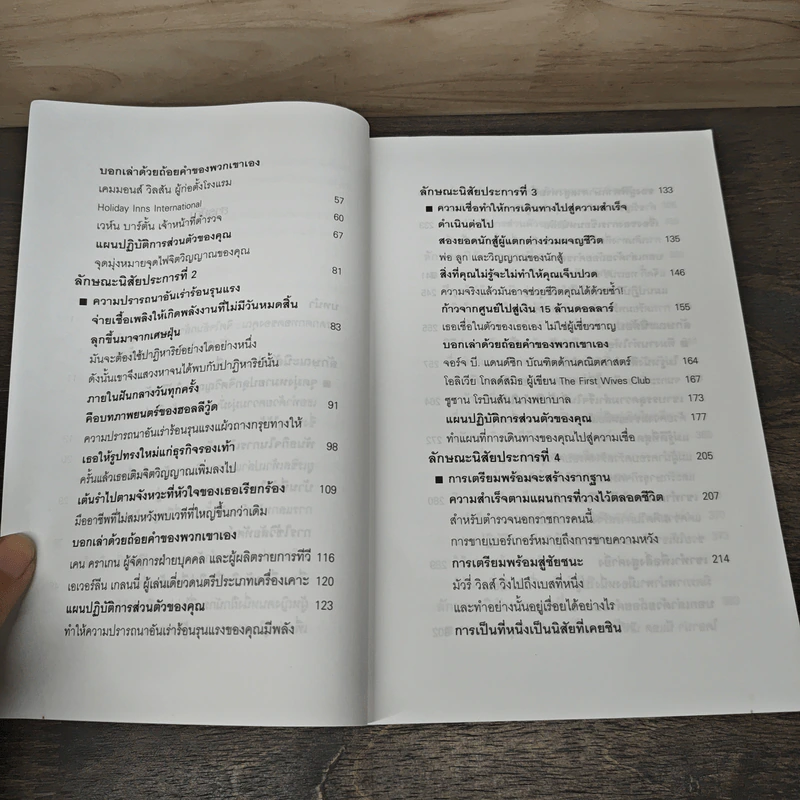 บอกเล่าด้วยถ้อยคำของพวกเขาเอง
เคมมอนส์ วิลสัน ผู้ก่อตั้งโรงแรม
Holiday Inns International 57
เวห์น บาร์ตั้น เจ้าหน้าที่ตำรวจ 60
แผนปฏิบัติการส่วนตัวของคุณ 67
จุดมุ่งหมายจุดไฟจิตวิญญาณของคุณ
ลักษณะนิสัยประการที่ 2 81
■ ความปรารถนาอันเร่าร้อนรุนแรง
จ่ายเชื้อเพลิงให้เกิดพลังงานที่ไม่มีวันหมดสิ้น
ลุกขึ้นมาจากเศษฝุ่น 83
มันจะต้องใช้ปาฏิหาริย์อย่างใดอย่างหนึ่ง
ดังนั้นเขาจึงแสวงหาจนได้พบกับปาฏิหาริย์นั้น
ภายในฝันกลางวันทุกครั้ง
คือบทภาพยนตร์ของฮอลลีวู้ด 91
ความปรารถนาอันเร่าร้อนรุนแรงแผ้วถางกรุยทางให้
เธอให้รูปทรงใหม่แก่ธุรกิจรองเท้า 98
ครั้นแล้วเธอเติมจิตวิญญาณเพิ่มลงไป
เต้นรำไปตามจังหวะที่หัวใจของเธอเรียกร้อง 109
มืออาชีพที่ไม่สมหวังพบเวทีที่ใหญ่ขึ้นกว่าเดิม
บอกเล่าด้วยถ้อยคำของพวกเขาเอง
เคน คราเกน ผู้จัดการฝ่ายบุคคล และผู้ผลิตรายการทีวี 116
เอเวอร์ลีน เกลนนี่ ผู้เล่นเดี่ยวดนตรีประเภทเครื่องเคาะ 120
แผนปฏิบัติการส่วนตัวของคุณ 123
ทำให้ความปรารถนาอันเร่าร้อนรุนแรงของคุณมีพลัง
ลักษณะนิสัยประการที่ 3 133
■ ความเชื่อทำให้การเดินทางไปสู่ความสำเร็จ
ดำเนินต่อไป
สองยอดนักสู้ผู้แตกต่างร่วมผจญชีวิต 135
พ่อ ลูก และวิญญาณของนักสู้
สิ่งที่คุณไม่รู้จะไม่ทำให้คุณเจ็บปวด 146
ความจริงแล้วมันอาจช่วยชีวิตคุณได้ด้วยซ้ำ!
ก้าวจากศูนย์ไปสู่เงิน 15 ล้านดอลลาร์ 155
เธอเชื่อในตัวของเธอเอง ไม่ใช่ผู้เชี่ยวชาญ
บอกเล่าด้วยถ้อยคำของพวกเขาเอง
จอร์จ บี. แดนต์ซิก บัณฑิตด้านคณิตศาสตร์ 164
โอลิเวีย โกลด์สมิธ ผู้เขียน The First Wives Club 167
ซูซาน โรบินสัน นางพยาบาล 173
แผนปฏิบัติการส่วนตัวของคุณ 177
ทำแผนที่การเดินทางของคุณไปสู่ความเชื่อ
ลักษณะนิสัยประการที่ 4 205
■ การเตรียมพร้อมจะสร้างรากฐาน
ความสำเร็จตามแผนการที่วางไว้ตลอดชีวิต 207
สำหรับตำรวจนอกราชการคนนี้
การขายเบอร์เกอร์หมายถึงการขายความหวัง
การเตรียมพร้อมสู่ชัยชนะ 214
มัวรี่ วิลส์ วิ่งไปถึงเบสที่หนึ่ง
และทำอย่างนั้นอยู่เรื่อยได้อย่างไร
การเป็นที่หนึ่งเป็นนิสัยที่เคยชิน